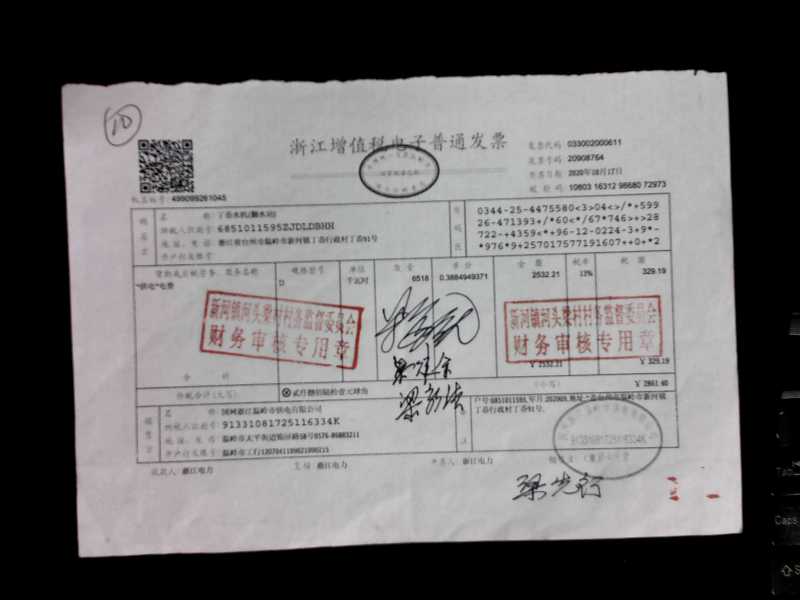 10
浙江增值税电子普通发票
发票代码 033002000611
发票号码 20908764
开票日期 2020年10月17日
校验码 10803 16312 98680 72973
机器编号: 499099261045
购买方
名 称: 丁岙水机(翻水站)
纳税人识别号: 6851011595ZJDLDBHH
地址、电话: 浙江省台州市温岭市新河镇丁岙行政村丁岙91号
开户行及账号:
密码区
0344-25-4475580<3>04<>/*+599
26-471393+/*60<*/67*746>+>28
722-+4359<*+96-12-0224-3+9*-
*976*9+257017577191607++0+*2
货物或应税劳务、服务名称 规格型号 单位 数量 单价 金额 税率 税额
*供电*电费 D 千瓦时 6518 0.3884949371 2532.21 13% 329.19
新河镇河头梁村村务监督委员会
财务审核专用章
新河镇河头梁村村务监督委员会
财务审核专用章
合计 ¥ 2532.21 ¥ 329.19
价税合计(大写) 贰仟捌佰陆拾壹元肆角 (小写) ¥ 2861.40
销售方
名 称: 国网浙江温岭市供电有限公司
纳税人识别号: 91331081725116334K
地址、电话: 温岭市太平街道锦屏路58号0576-86883211
开户行及账号: 温岭市工行1207041109021099215
户号:6851011595,年月:202009,地址:
丁岙行政村丁岙91号.
91331081725116334K
收款人: 浙江电力 复核: 浙江电力 开票人: 浙江电力
梁先行